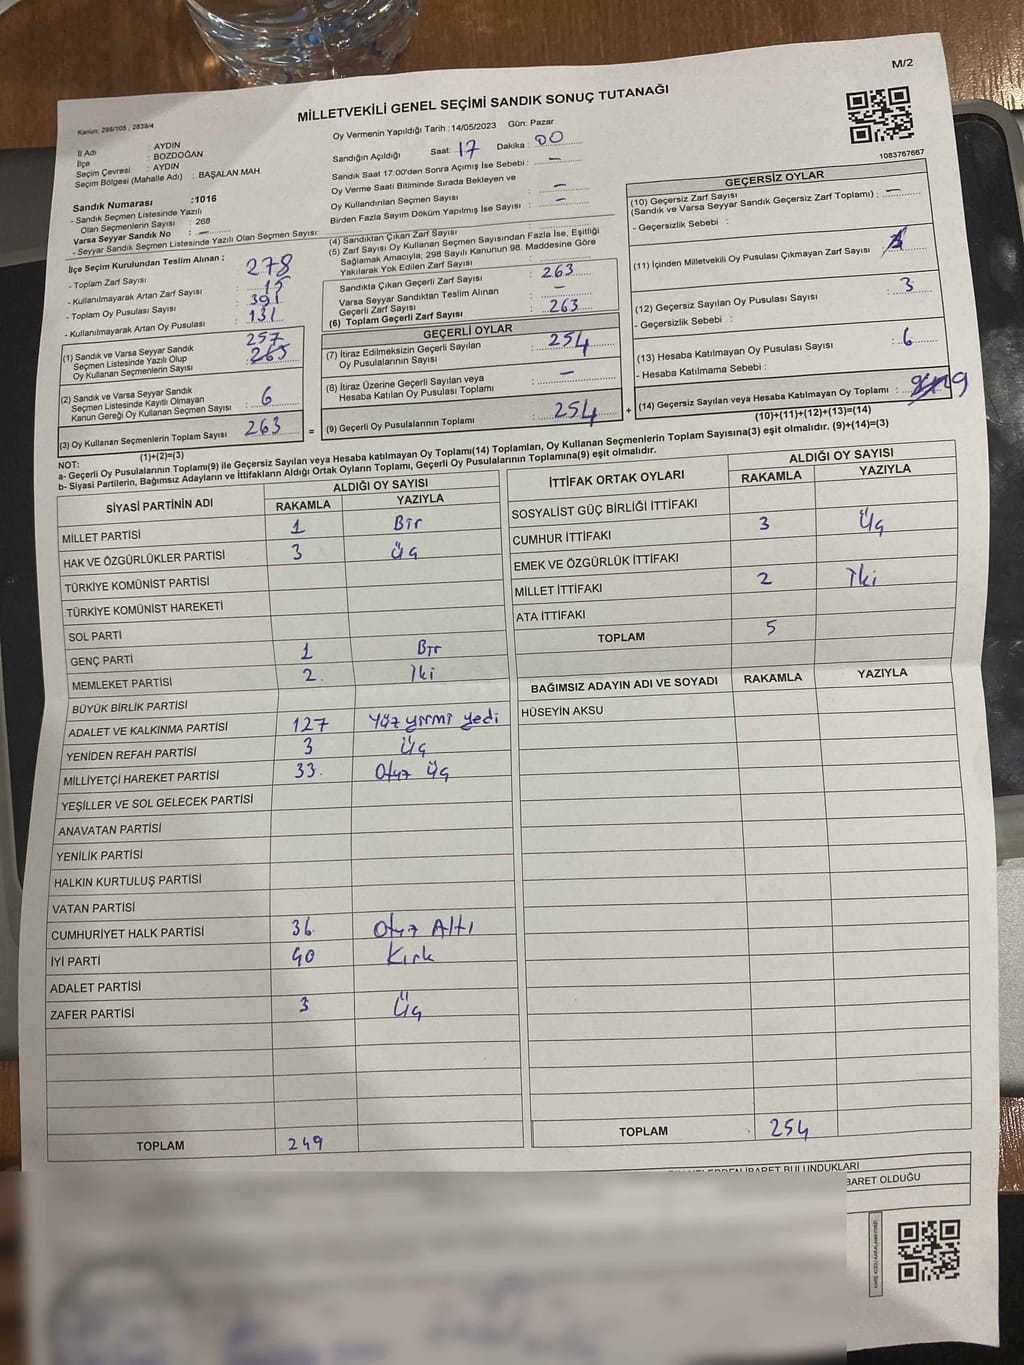 M/2
MİLLETVEKİLİ GENEL SEÇİMİ SANDIK SONUÇ TUTANAĞI
Kanun: 298/105 , 2839/4
İl Adı : AYDIN
İlçe : BOZDOĞAN
Seçim Çevresi : AYDIN
Seçim Bölgesi (Mahalle Adı) : BAŞALAN MAH.
Sandık Numarası :1016
- Sandık Seçmen Listesinde Yazılı
Olan Seçmenlerin Sayısı : 268
Varsa Seyyar Sandık No : –
- Seyyar Sandık Seçmen Listesinde Yazılı Olan Seçmen Sayısı:
Oy Vermenin Yapıldığı Tarih :14/05/2023 Gün: Pazar
Sandığın Açıldığı Saat: 17 Dakika : 00
Sandık Saat 17:00'den Sonra Açımış İse Sebebi : –
Oy Verme Saati Bitiminde Sırada Bekleyen ve
Oy Kullandırılan Seçmen Sayısı : –
Birden Fazla Sayım Döküm Yapılmış İse Sayısı : –
1083767667
İlçe Seçim Kurulundan Teslim Alınan ;
- Toplam Zarf Sayısı : 278
- Kullanılmayarak Artan Zarf Sayısı : 15
- Toplam Oy Pusulası Sayısı : 391
- Kullanılmayarak Artan Oy Pusulası : 131
(1) Sandık ve Varsa Seyyar Sandık
Seçmen Listesinde Yazılı Olup
Oy Kullanan Seçmenlerin Sayısı : 257
(2) Sandık ve Varsa Seyyar Sandık
Seçmen Listesinde Kayıtlı Olmayan
Kanun Gereği Oy Kullanan Seçmen Sayısı : 6
(3) Oy Kullanan Seçmenlerin Toplam Sayısı : 263
(1)+(2)=(3)
(4) Sandıktan Çıkan Zarf Sayısı :
(5) Zarf Sayısı Oy Kullanan Seçmen Sayısından Fazla İse, Eşitliği
Sağlamak Amacıyla, 298 Sayılı Kanunun 98. Maddesine Göre
Yakılarak Yok Edilen Zarf Sayısı :
Sandıkta Çıkan Geçerli Zarf Sayısı : 263
Varsa Seyyar Sandıktan Teslim Alınan
Geçerli Zarf Sayısı : –
(6) Toplam Geçerli Zarf Sayısı : 263
GEÇERLİ OYLAR
(7) İtiraz Edilmeksizin Geçerli Sayılan
Oy Pusulalarının Sayısı : 254
(8) İtiraz Üzerine Geçerli Sayılan veya
Hesaba Katılan Oy Pusulası Toplamı : –
= (9) Geçerli Oy Pusulalarının Toplamı : 254 +
GEÇERSİZ OYLAR
(10) Geçersiz Zarf Sayısı
(Sandık ve Varsa Seyyar Sandık Geçersiz Zarf Toplamı) : –
- Geçersizlik Sebebi :
(11) İçinden Milletvekili Oy Pusulası Çıkmayan Zarf Sayısı :
(12) Geçersiz Sayılan Oy Pusulası Sayısı : 3
- Geçersizlik Sebebi :
(13) Hesaba Katılmayan Oy Pusulası Sayısı : 6
- Hesaba Katılmama Sebebi :
(14) Geçersiz Sayılan veya Hesaba Katılmayan Oy Toplamı : 9
(10)+(11)+(12)+(13)=(14)
NOT:
a- Geçerli Oy Pusulalarının Toplamı(9) ile Geçersiz Sayılan veya Hesaba Katılmayan Oy Toplamı(14) Toplamları, Oy Kullanan Seçmenlerin Toplam Sayısına(3) eşit olmalıdır. (9)+(14)=(3)
b- Siyasi Partilerin, Bağımsız Adayların ve İttifakların Aldığı Ortak Oyların Toplamı, Geçerli Oy Pusulalarının Toplamına(9) eşit olmalıdır.
SİYASİ PARTİNİN ADI ALDIĞI OY SAYISI
RAKAMLA YAZIYLA
MİLLET PARTİSİ 1 Bir
HAK VE ÖZGÜRLÜKLER PARTİSİ 3 Üç
TÜRKİYE KOMÜNİST PARTİSİ
TÜRKİYE KOMÜNİST HAREKETİ
SOL PARTİ
GENÇ PARTİ 1 Bir
MEMLEKET PARTİSİ 2. İki
BÜYÜK BİRLİK PARTİSİ
ADALET VE KALKINMA PARTİSİ 127 Yüz yirmi yedi
YENİDEN REFAH PARTİSİ 3 Üç
MİLLİYETÇİ HAREKET PARTİSİ 33. Otuz üç
YEŞİLLER VE SOL GELECEK PARTİSİ
ANAVATAN PARTİSİ
YENİLİK PARTİSİ
HALKIN KURTULUŞ PARTİSİ
VATAN PARTİSİ
CUMHURİYET HALK PARTİSİ 36 Otuz Altı
İYİ PARTİ 40 Kırk
ADALET PARTİSİ
ZAFER PARTİSİ 3 Üç
TOPLAM 249
İTTİFAK ORTAK OYLARI ALDIĞI OY SAYISI
RAKAMLA YAZIYLA
SOSYALİST GÜÇ BİRLİĞİ İTTİFAKI
CUMHUR İTTİFAKI 3 Üç
EMEK VE ÖZGÜRLÜK İTTİFAKI
MİLLET İTTİFAKI 2 İki
ATA İTTİFAKI
TOPLAM 5
BAĞIMSIZ ADAYIN ADI VE SOYADI RAKAMLA YAZIYLA
HÜSEYİN AKSU
TOPLAM 254
İBARET BULUNDUKLARI
BARET OLDUĞU